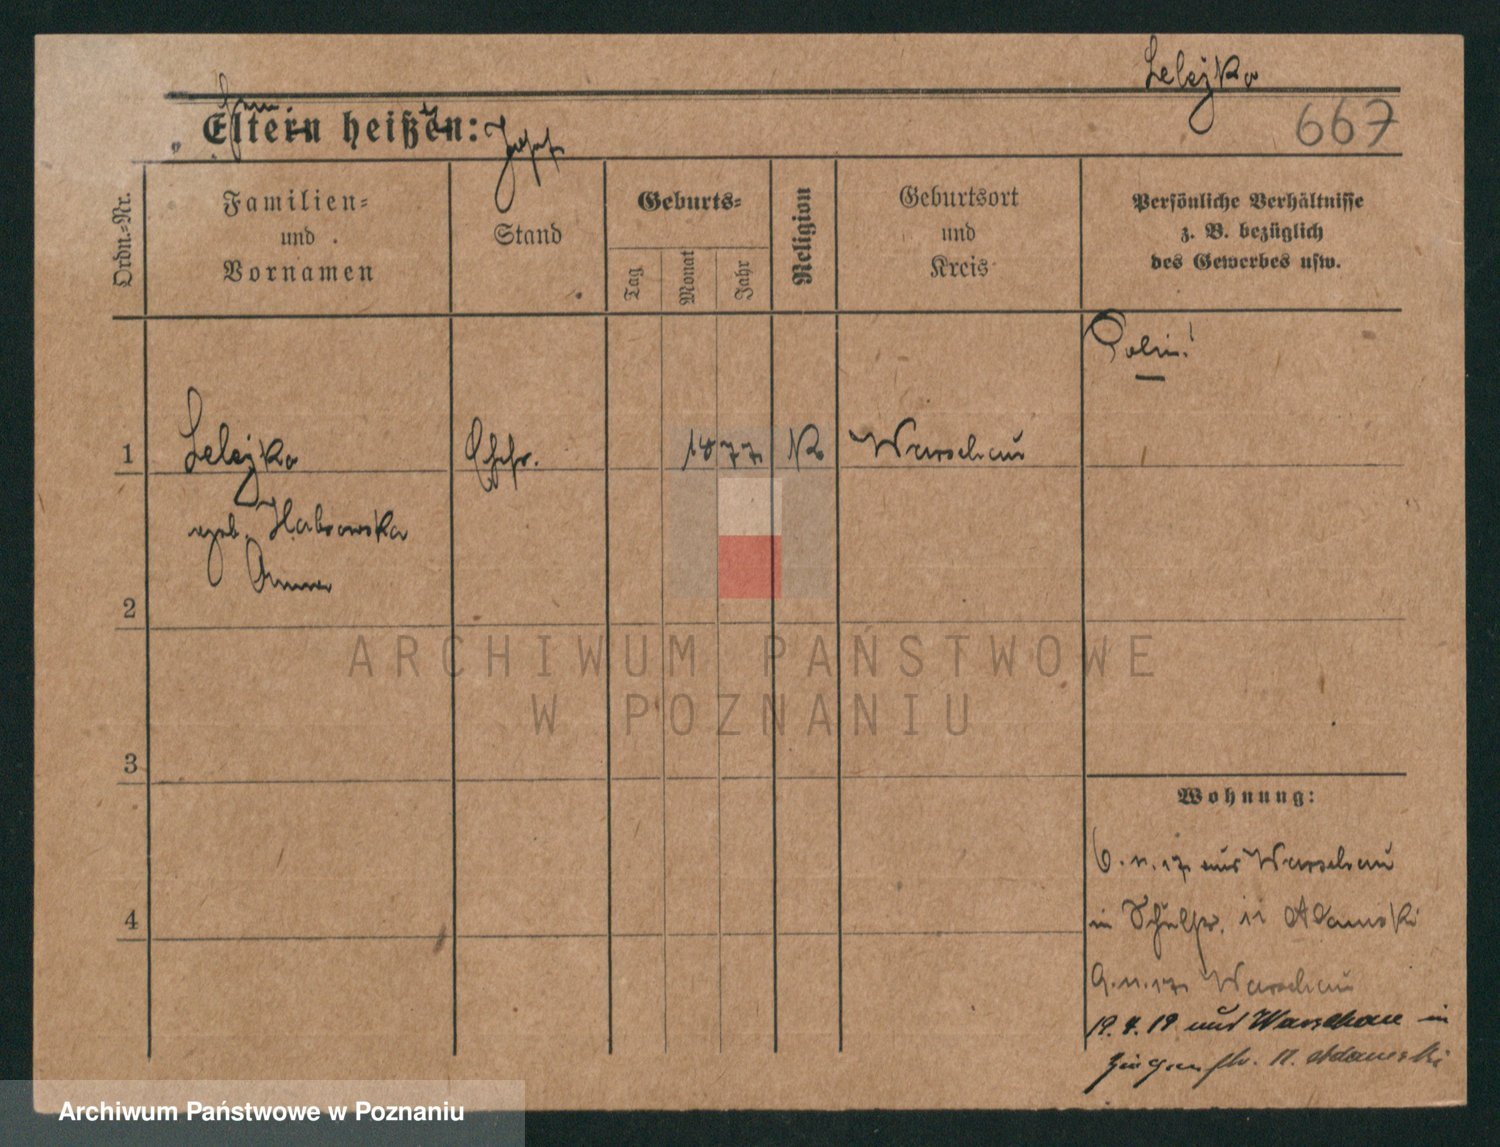 Lelejko
667
Eltern heißen: Josef
Ordn.-Nr.
Familien-
und
Vornamen
Stand
Geburts-
Tag
Monat
Jahr
Religion
Geburtsort
und
Kreis
Persönliche Verhältnisse
z. B. bezüglich
des Gewerbes usw.
Polin!
1 Lelejko Ehefr. 1877 K Warschau
geb.
Anna
2
3
4
Wohnung:
aus Warschau
in 11 Adamski
Warschau
19.4.19 aus Warschau in
str. 11. Adamski
ARCHIWUM PAŃSTWOWE
W POZNANIU
Archiwum Państwowe w Poznaniu